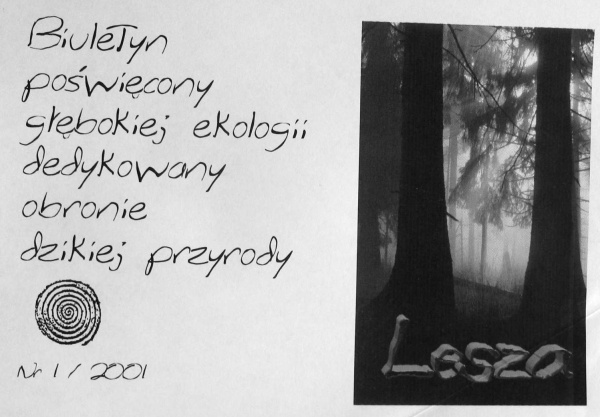 Biuletyn
poświęcony
głębokiej ekologii
dedykowany
obronie
dzikiej przyrody
Nr 1 / 2001
Lesza